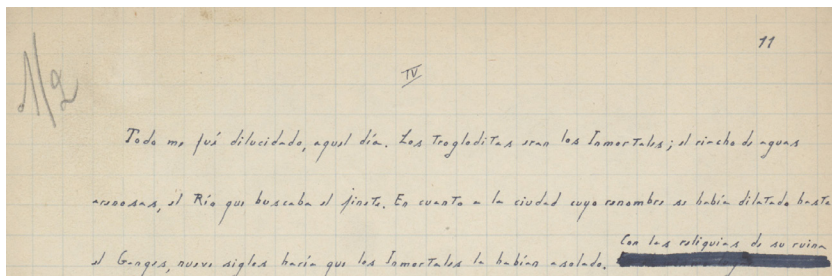 11
1/2
IV
Todo me fué dilucidado, aquel día. Los trogloditas eran los Inmortales; el riacho de aguas
arenosas, el Río que buscaba el jinete. En cuanto a la ciudad cuyo renombre se había dilatado hasta
el Ganges, nueve siglos haría que los Inmortales la habían asolado. Con las reliquias de su ruina